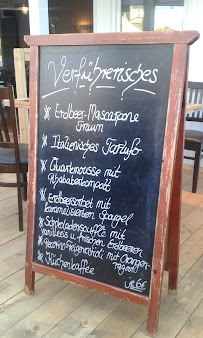 Verführerisches
* Erdbeer-Mascarpone
Traum
* Italienisches Tartufo
* Quarkmousse mit
Rhabarberkompott
* Erdbeersorbet mit
karamellisiertem Spargel
* Schokoladensouffle mit
Vanilleeis u frischen Erdbeeren
mit Orangen-
* Küchenkaffee